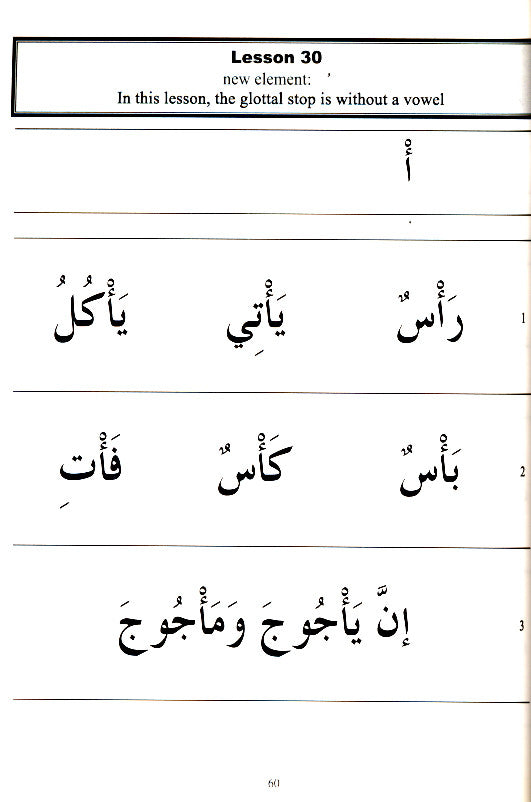 Lesson 30
new element: ʾ
In this lesson, the glottal stop is without a vowel
أْ
رَأْسٌ يَأْتِي يَأْكُلُ 1
بَأْسٌ كَأْسٌ فَأْتِ 2
إنَّ يَأْجُوجَ وَمَأْجُوجَ 3
60